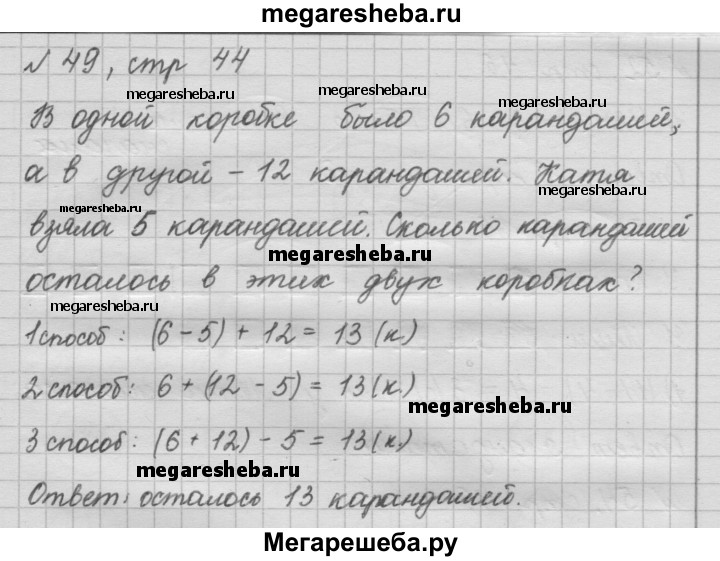 megaresheba.ru
№ 49, стр 44
megaresheba.ru
megaresheba.ru
В одной коробке было 6 карандашей,
а в другой - 12 карандашей. Катя
megaresheba.ru
megaresheba.ru
взяла 5 карандашей. Сколько карандашей
megaresheba.ru
осталось в этих двух коробках?
megaresheba.ru
1 способ: (6 - 5) + 12 = 13 (к.)
2 способ: 6 + (12 - 5) = 13 (к.)
megaresheba.ru
3 способ: (6 + 12) - 5 = 13 (к.)
megaresheba.ru
Ответ: осталось 13 карандашей.
megaresheba.ru
Мегарешеба.ру